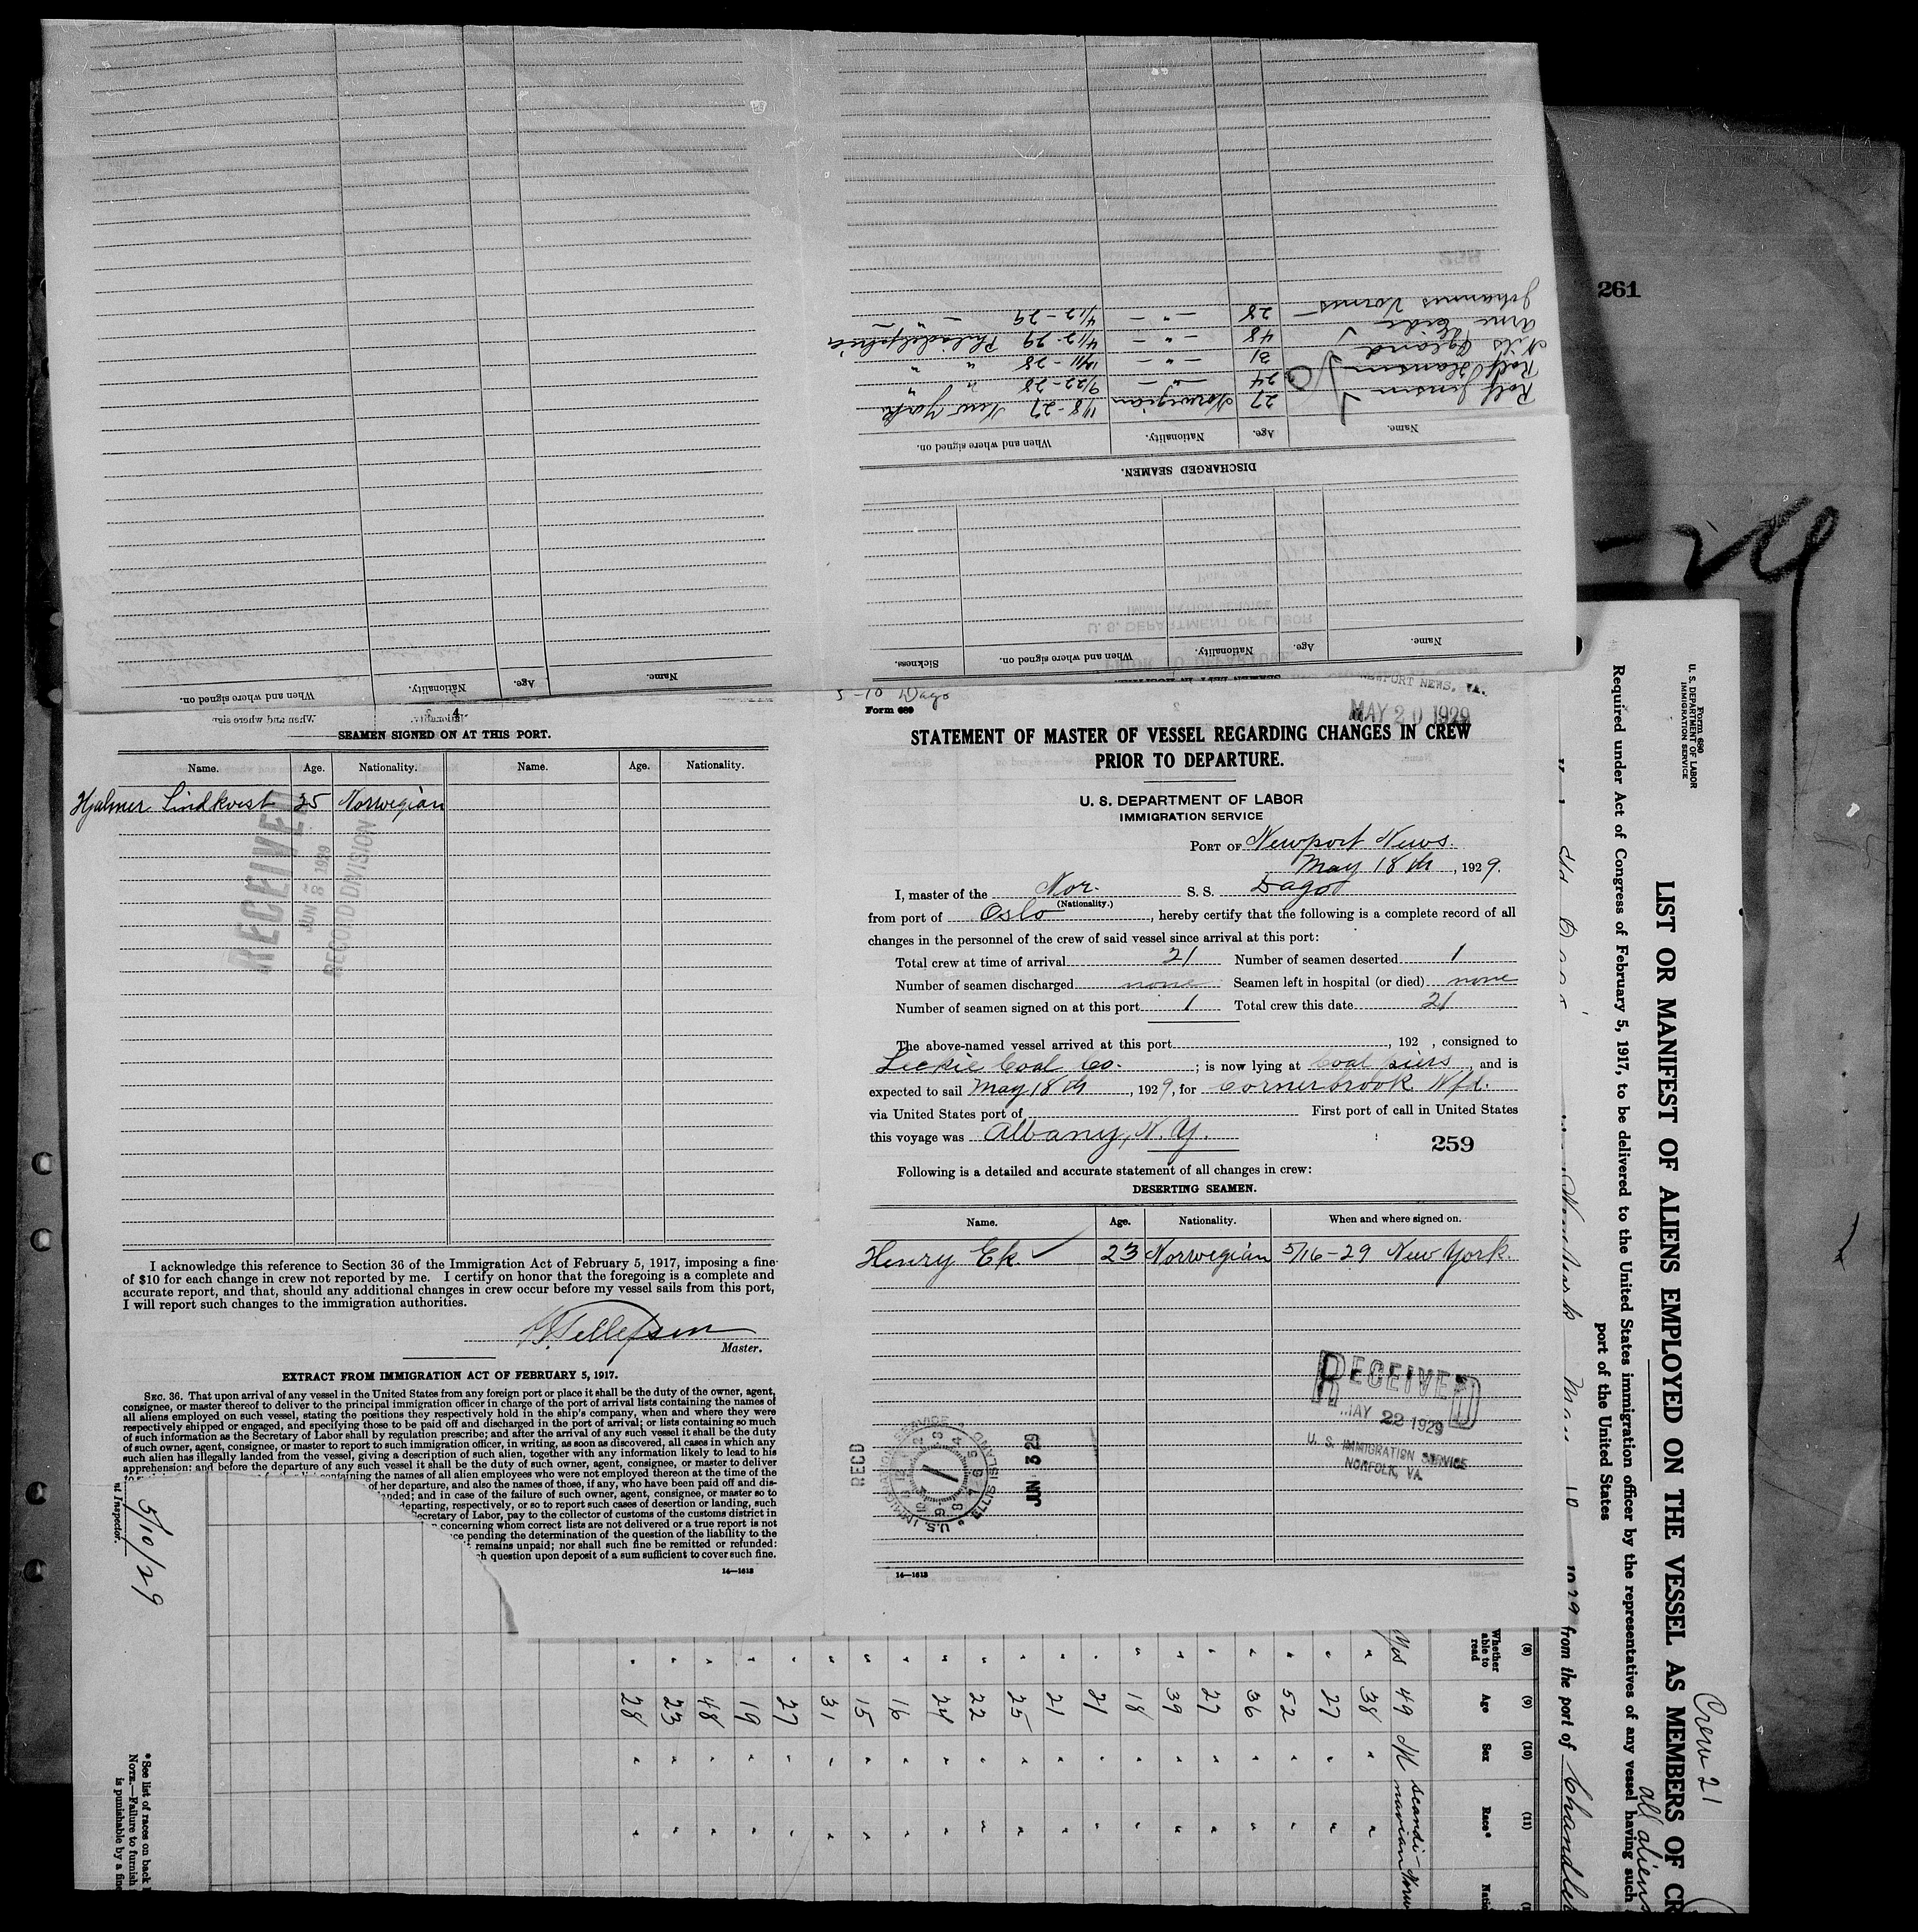 261
Johannes
28 — " — 4/12-29 — " —
Arne Eide
48 — " — 4/12-29 Philadelphia
Nils
31 — " — 12/11-28 " "
Rolf Hansen
24 — " — 9/22-28 " "
Rolf Jensen
27 Norwegian 11/8-27 New York
Name. Age. Nationality. When and where signed on.
DISCHARGED SEAMEN.
Name. Age. Nationality. When and where signed on. Sickness.
Name. Age. Nationality. When and where signed on.
5-10 Dago
NEWPORT NEWS, VA.
MAY 20 1929
Form 689
STATEMENT OF MASTER OF VESSEL REGARDING CHANGES IN CREW
PRIOR TO DEPARTURE.
U. S. DEPARTMENT OF LABOR
IMMIGRATION SERVICE
PORT OF Newport News.
May 18th, 1929.
I, master of the Nor. S. S. Dago
(Nationality.)
from port of Oslo, hereby certify that the following is a complete record of all
changes in the personnel of the crew of said vessel since arrival at this port:
Total crew at time of arrival 21 Number of seamen deserted 1
Number of seamen discharged none Seamen left in hospital (or died) none
Number of seamen signed on at this port 1 Total crew this date 21
The above-named vessel arrived at this port, 192 , consigned to
Leckie Coal Co. ; is now lying at Coal piers, and is
expected to sail May 18th, 1929, for Cornerbrook Nfd.
via United States port of First port of call in United States
this voyage was Albany, N. Y.
259
Following is a detailed and accurate statement of all changes in crew:
DESERTING SEAMEN.
Name. Age. Nationality. When and where signed on.
Henry Ek 23 Norwegian 5/16-29 New York.
RECEIVED
MAY 22 1929
U. S. IMMIGRATION SERVICE
NORFOLK, VA.
RECD
U.S. IMMIGRATION SERVICE ELLIS ISLAND
JUN 3 29
14—1613
SEAMEN SIGNED ON AT THIS PORT.
Name. Age. Nationality. Name. Age. Nationality.
Hjalmer Lindkvest 25 Norwegian
RECEIVED
JUN 8 1929
RECORD DIVISION
I acknowledge this reference to Section 36 of the Immigration Act of February 5, 1917, imposing a fine
of $10 for each change in crew not reported by me. I certify on honor that the foregoing is a complete and
accurate report, and that, should any additional changes in crew occur before my vessel sails from this port,
I will report such changes to the immigration authorities.
Tellefsen
Master.
EXTRACT FROM IMMIGRATION ACT OF FEBRUARY 5, 1917.
SEC. 36. That upon arrival of any vessel in the United States from any foreign port or place it shall be the duty of the owner, agent,
consignee, or master thereof to deliver to the principal immigration officer in charge of the port of arrival lists containing the names of
all aliens employed on such vessel, stating the positions they respectively hold in the ship's company, when and where they were
respectively shipped or engaged, and specifying those to be paid off and discharged in the port of arrival; or lists containing so much
of such information as the Secretary of Labor shall by regulation prescribe; and after the arrival of any such vessel it shall be the duty
of such owner, agent, consignee, or master to report to such immigration officer, in writing, as soon as discovered, all cases in which any
such alien has illegally landed from the vessel, giving a description of such alien, together with any information likely to lead to his
apprehension; and before the departure of any such vessel it shall be the duty of such owner, agent, consignee, or master to deliver
containing the names of all alien employees who were not employed thereon at the time of the
of her departure, and also the names of those, if any, who have been paid off and dis-
anded; and in case of the failure of such owner, agent, consignee, or master so to
departing, respectively, or so to report such cases of desertion or landing, such
Secretary of Labor, pay to the collector of customs of the customs district in
concerning whom correct lists are not delivered or a true report is not
pending the determination of the question of the liability to the
remains unpaid; nor shall such fine be remitted or refunded:
ch question upon deposit of a sum sufficient to cover such fine.
14—1613
5/10/29
nt Inspector.
Form 680
U. S. DEPARTMENT OF LABOR
IMMIGRATION SERVICE
Crew 21
all aliens
LIST OR MANIFEST OF ALIENS EMPLOYED ON THE VESSEL AS MEMBERS OF CR
Required under Act of Congress of February 5, 1917, to be delivered to the United States immigration officer by the representatives of any vessel having such
port of the United States
1929 from the port of Chandler
(8) (9) (10) (11)
Whether able to read Age Sex Race* Natio
Yes 49 M Scandinavian Norw
" 38 " "
" 27 " "
" 52 " "
" 36 " "
" 27 " "
" 39 " "
" 18 " "
" 21 " "
" 21 " "
" 25 " "
" 22 " "
" 24 " "
" 16 " "
" 15 " "
" 31 " "
" 27 " "
" 19 " "
" 48 " "
" 23 " "
" 28 " "
*See list of races on back
NOTE.—Failure to furnish
is punishable by a fine